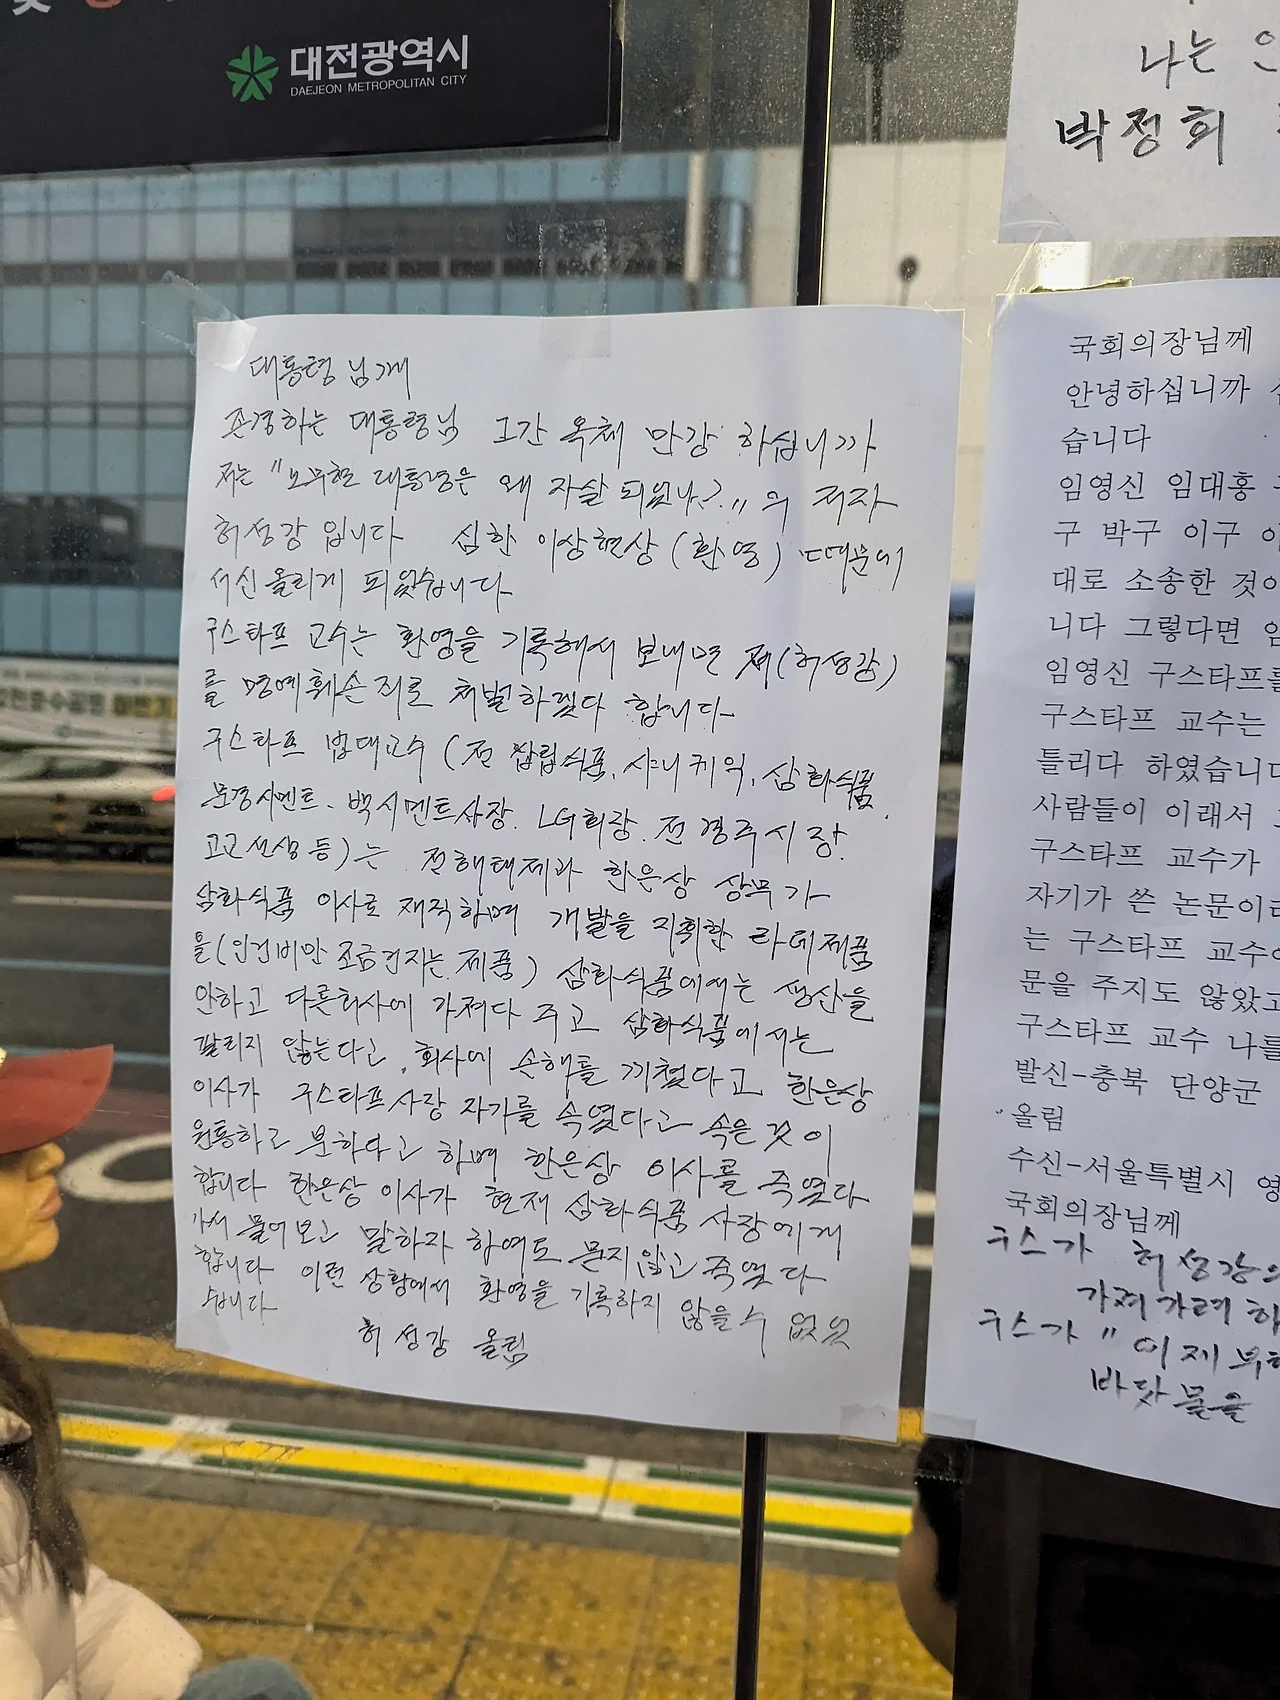 대전광역시
DAEJEON METROPOLITAN CITY
대통령님께
존경하는 대통령님 그간 옥체 만강 하십니까
저는 "노무현 대통령은 왜 자살 되었나?"의 저자
허성강 입니다 심한 이상현상(환영) 때문에
서신 올리게 되었습니다
구스타프 교수는 환영을 기록해서 보내면 저(허성강)
를 명예훼손죄로 처벌하겠다 합니다
구스타프 법대교수(전 삽립식품, 샤니케익, 삼화식품
문경시멘트, 백시멘트사장. LG회장. 전경주시장.
고고선생등)는 전해태제과 한은상 상무가
삼화식품 이사로 재직하며 개발을 지휘한 라데제품
을(인건비만 조금건지는 제품) 삼화식품에서는 생산을
안하고 다른회사에 가져다 주고 삼화식품에서는
팔리지 않는다고, 회사에 손해를 끼쳤다고 한은상
이사가 구스타프사장 자기를 속였다고 속은것이
원통하고 분하다고 하며 한은상 이사를 죽였다
합니다 한은상 이사가 현재 삼화식품 사장에게
가서 물어보고 말하자 하여도 묻지않고 죽였다
합니다 이런 상황에서 환영을 기록하지 않을수 없었
습니다
허성강 올림
나는
박정희
국회의장님께
안녕하십니까
습니다
임영신 임대홍
구 박구 이구
대로 소송한 것이
니다 그렇다면
임영신 구스타프를
구스타프 교수는
틀리다 하였습니다
사람들이 이래서
구스타프 교수가
자기가 쓴 논문이
는 구스타프 교수
문을 주지도 않았고
구스타프 교수 나를
발신-충북 단양군
올림
수신-서울특별시 영
국회의장님께
구스가 허성강의
가져가려 하
구스가 "이제
바닷물을